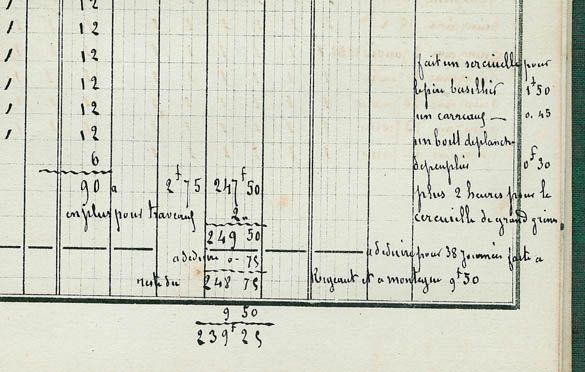 / 12
/ 12
/ 12
/ 12
/ 12
/ 12
6
90 a 2f 75 247f 50
en plus pour traveaux 2 "
249 50
a deduire 0 - 75
reste du 248 75
9 50
239f 25
fait un sercuille pour
le peu basillier 1f 50
un carreaux — 0. 45
un boilt de planch
de peuplié 0f 30
plus 2 heures pour le
cercuille de grand
a deduire pour 38 journeés faite a
Rigeaut et a montagne 9f 50